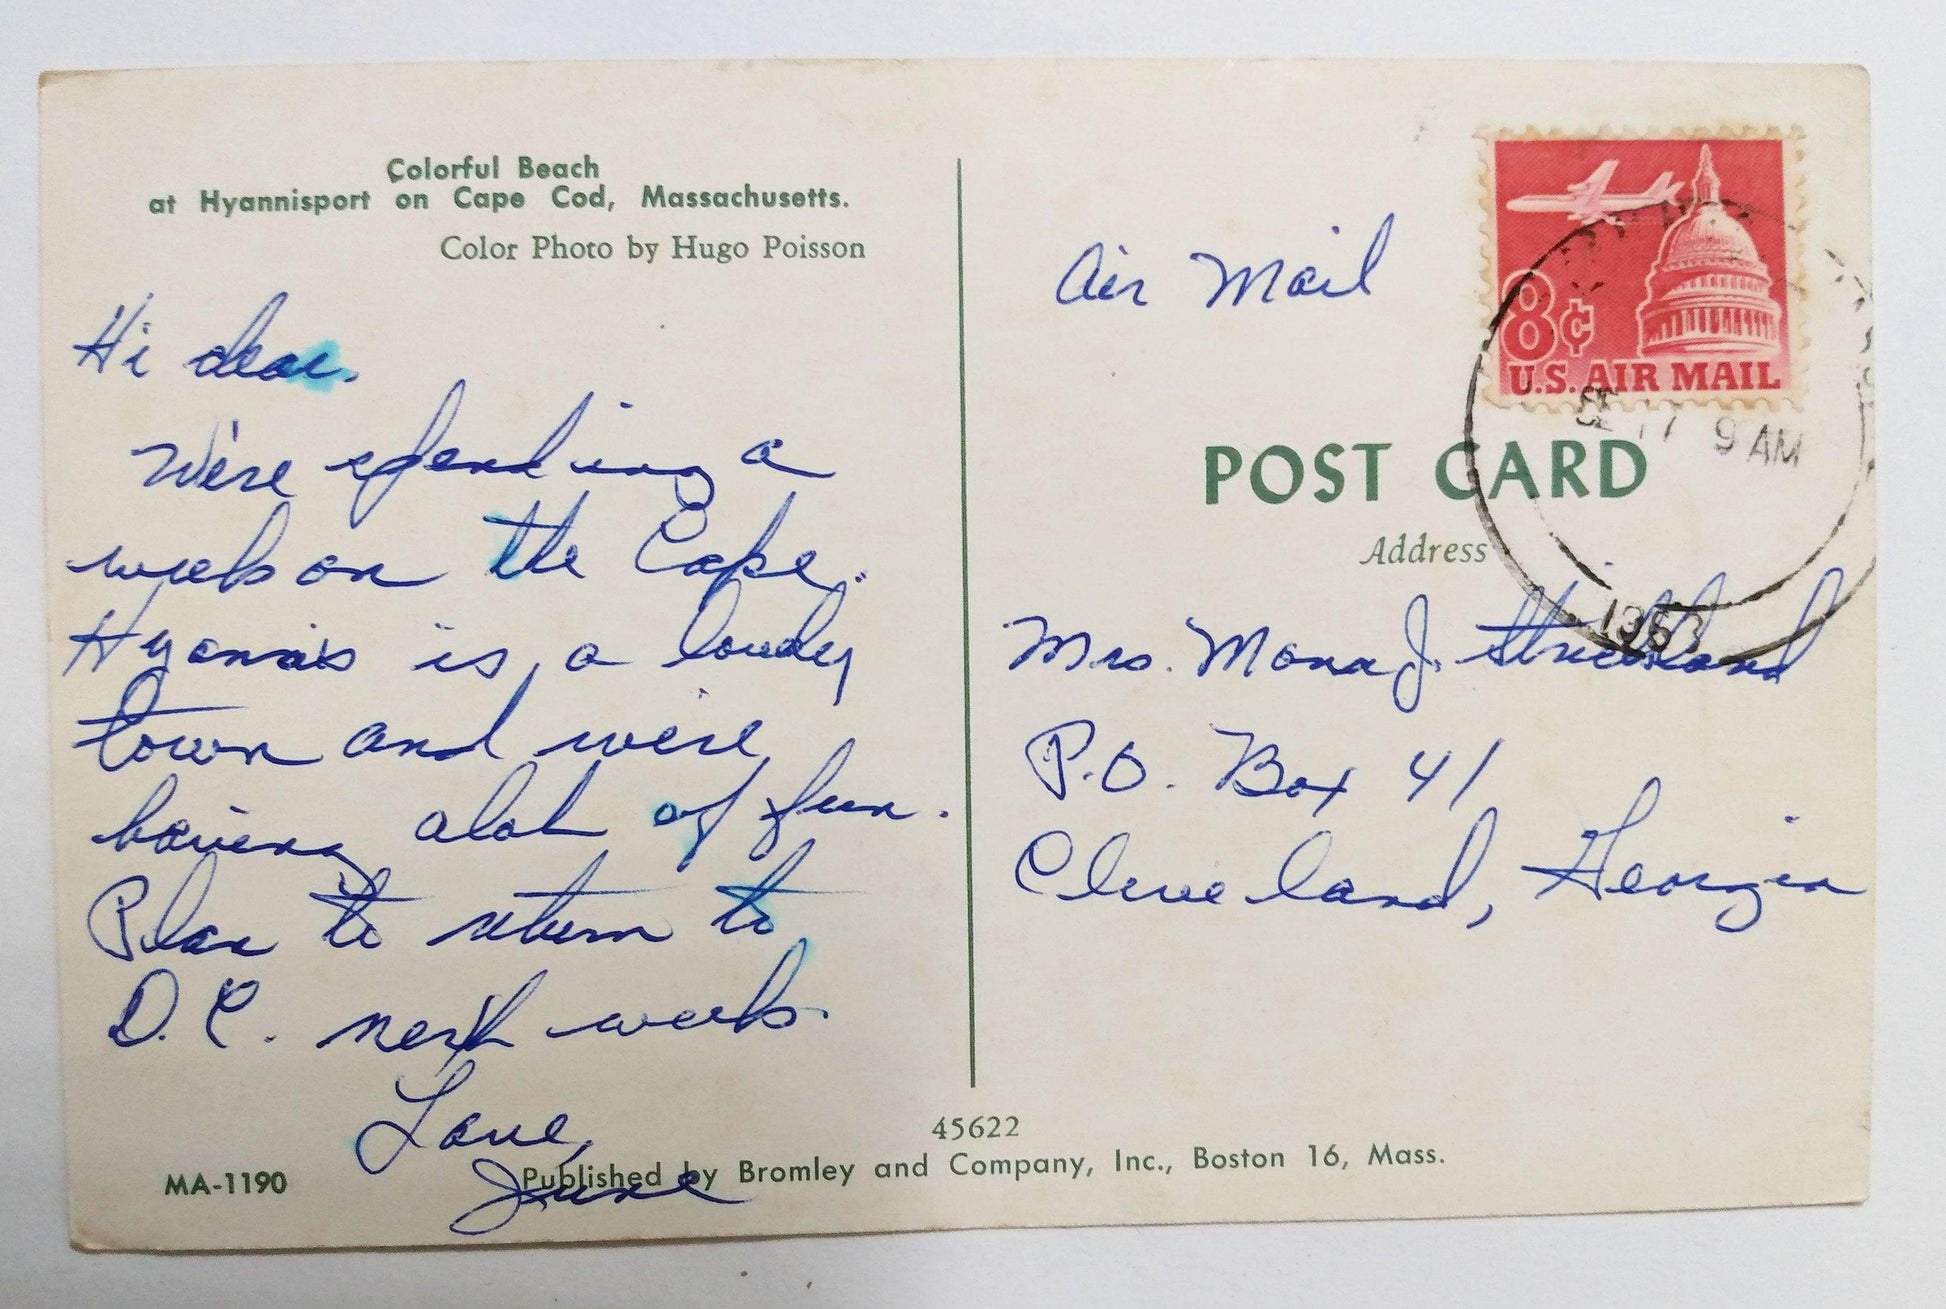 Colorful Beach
at Hyannisport on Cape Cod, Massachusetts.
Color Photo by Hugo Poisson
Hi dear.
We're spending a
week on the Cape.
Hyannis is a lovely
town and we're
having alot of fun.
Plan to return to
D.C. next week.
Love,
June
MA-1190
45622
Published by Bromley and Company, Inc., Boston 16, Mass.
Air Mail
8¢
U.S. AIR MAIL
17 9 AM
1963
POST CARD
Address
Mrs. Mona J. Strickland
P.O. Box 41
Cleveland, Georgia